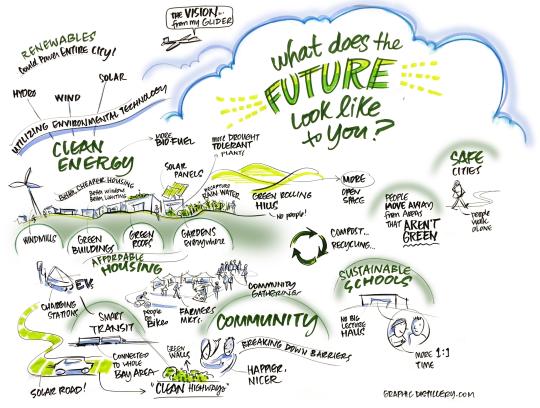 THE VISION...
from my GLIDER
RENEWABLES
Could POWER ENTIRE CITY!
HYDRO
WIND
SOLAR
UTILIZING ENVIRONMENTAL TECHNOLOGY
What does the
FUTURE
look like
to you?
CLEAN
ENERGY
MORE
BIO FUEL
MORE DROUGHT
TOLERANT
PLANTS
SOLAR
PANELS
CHEAPER HOUSING
BETTER WINDOWS
BETTER LIGHTING
RECAPTURE
RAIN WATER
GREEN ROLLING
HILLS
no people!
MORE
OPEN
SPACE
SAFE
CITIES
people
walk
alone
PEOPLE
MOVE AWAY
from AREAS
THAT
AREN'T
GREEN
WINDMILLS
GREEN
BUILDING
GREEN
ROOFS
GARDENS
everywhere
COMPOST...
RECYCLING...
AFFORDABLE
HOUSING
SUSTAINABLE
SCHOOLS
EV's
CHARGING
STATIONS
SMART
TRANSIT
people
on
Bikes
FARMERS
MKTS.
COMMUNITY
GATHERING
COMMUNITY
NO BIG
LECTURE
HALLS
MORE 1:1
TIME
CONNECTED
to WHOLE
BAY AREA
GREEN
WALLS
BREAKING DOWN BARRIERS
HAPPIER.
NICER
SOLAR ROAD!
"CLEAN HIGHWAYS"
GRAPHICDISTILLERY.COM